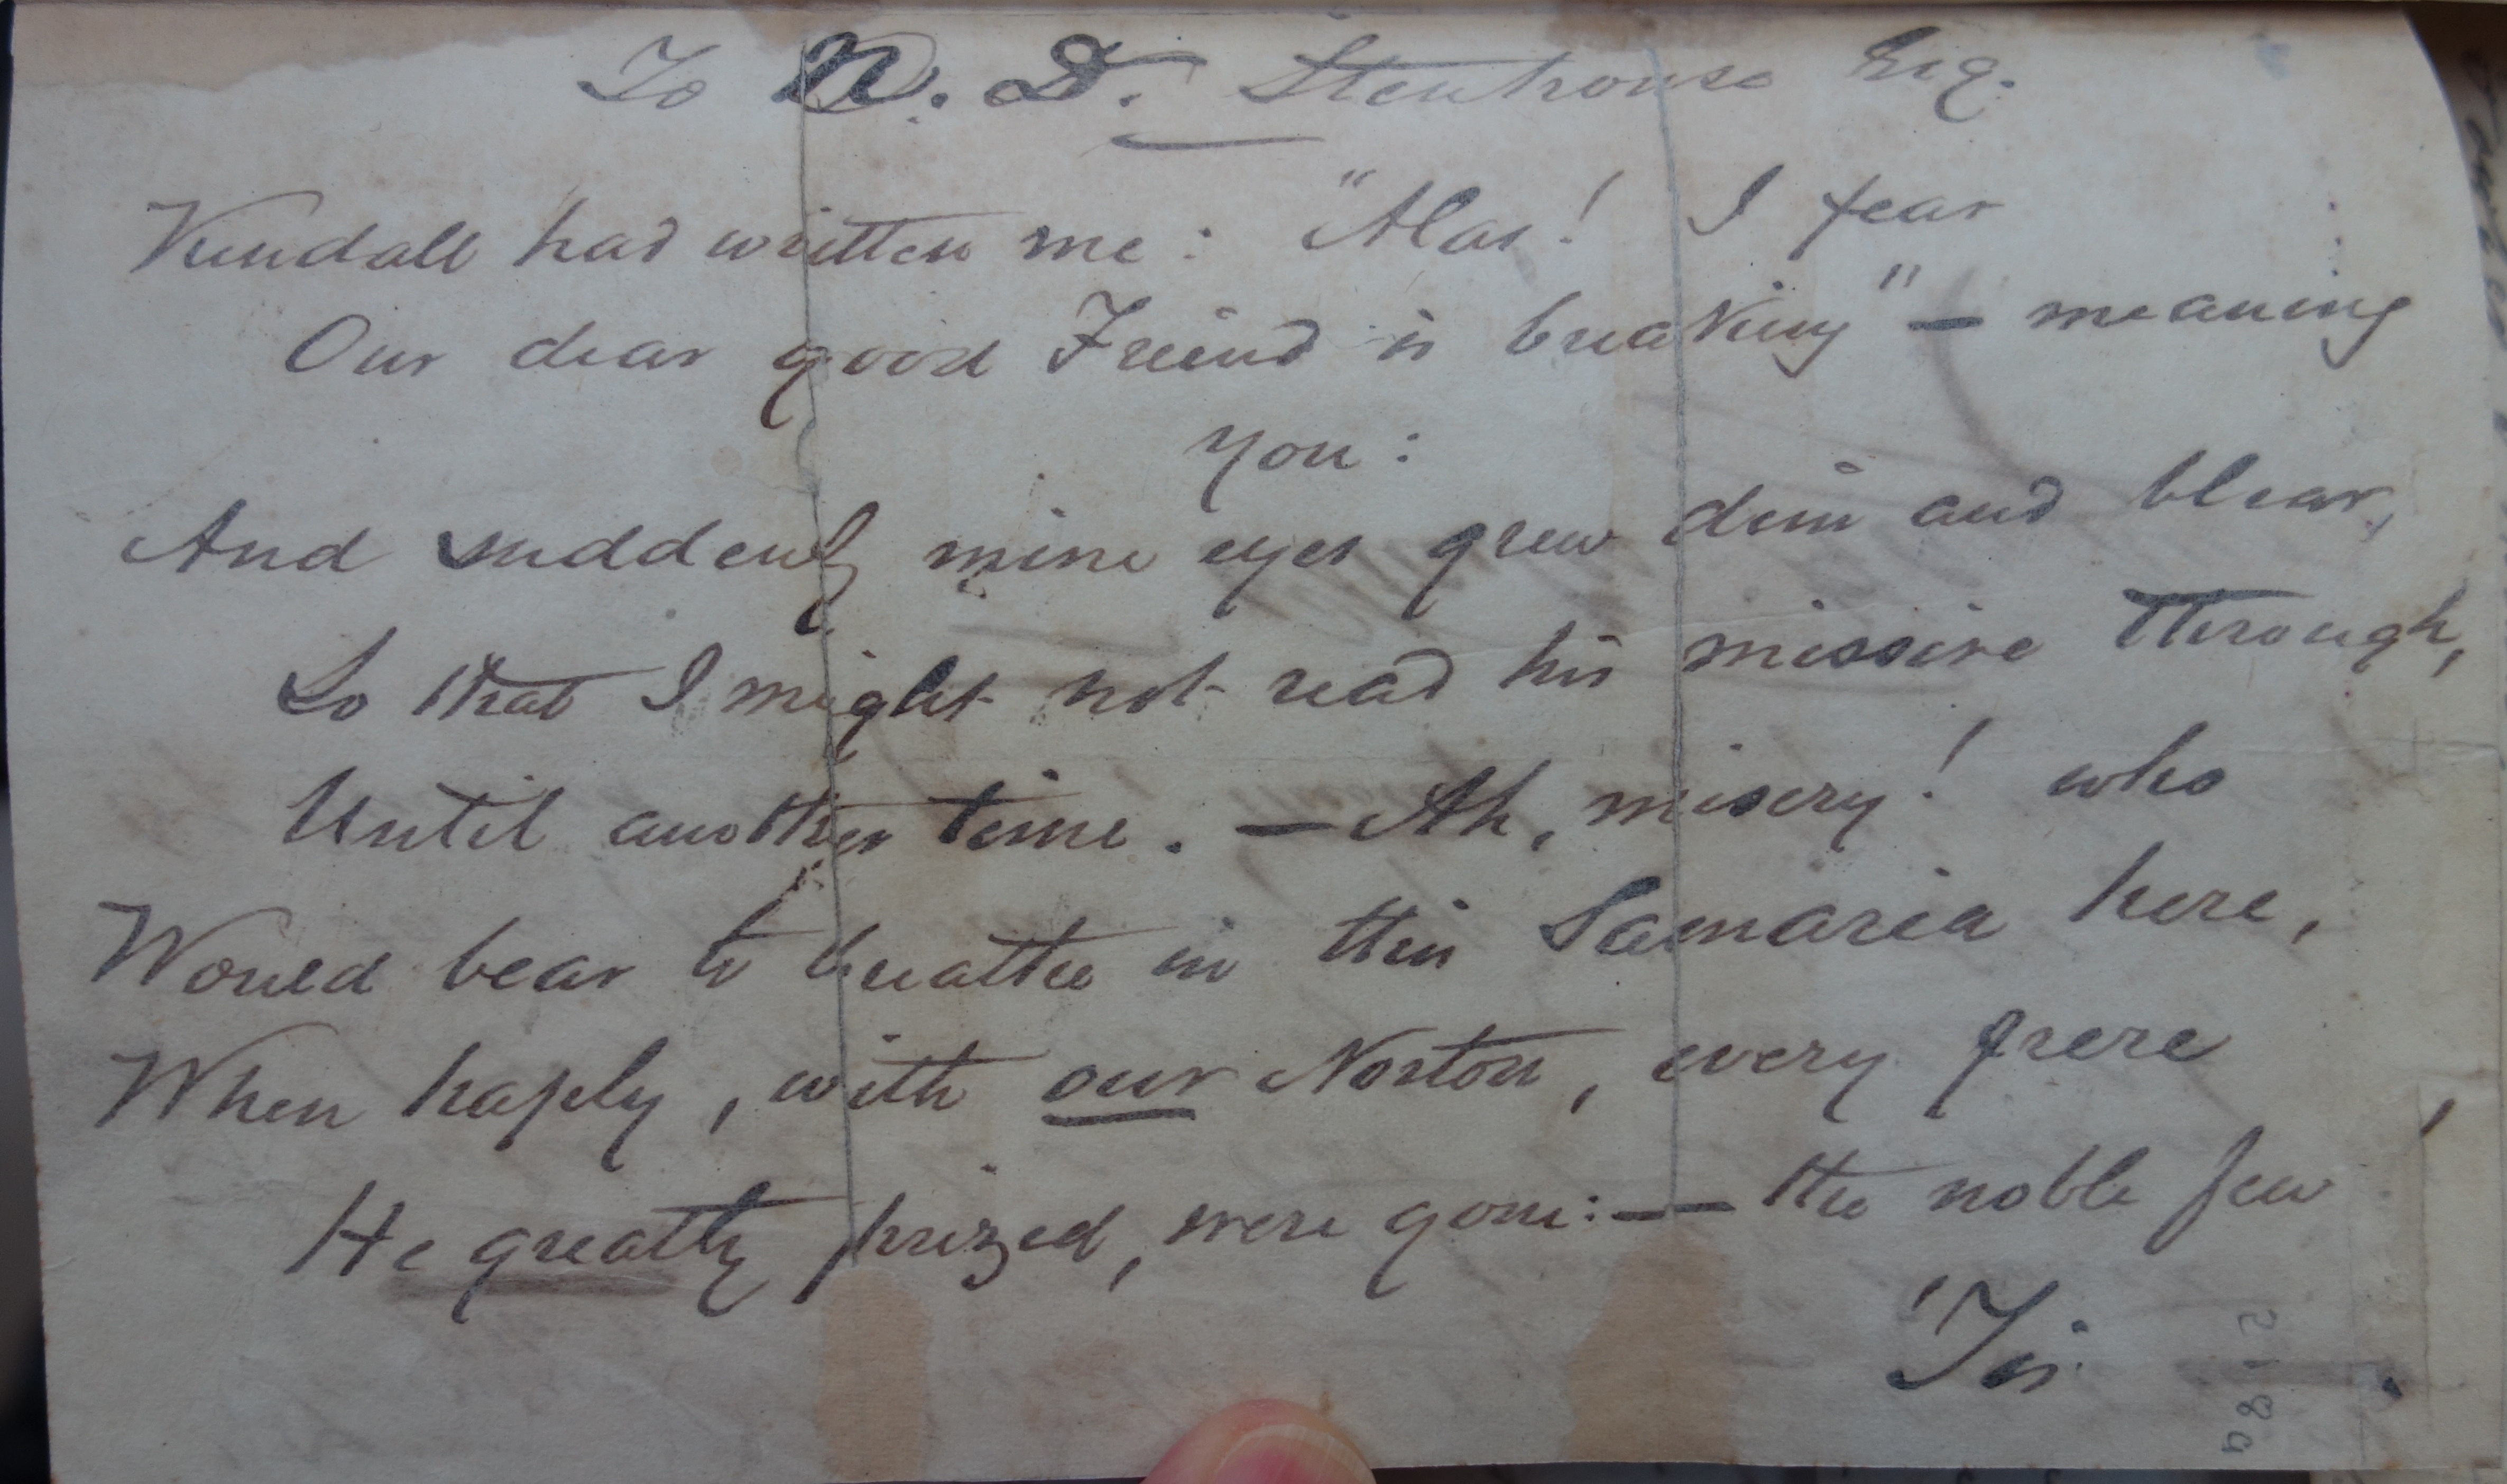 To N. D. Stenhouse Esq.
Kendall had written me: "Alas! I fear
Our dear good Friend is breaking" — meaning
you:
And suddenly mine eyes grew dim and blear,
So that I might not read his missive through,
Until another time. — Ah, misery! who
Would bear to breathe in this Samaria here,
When haply, with our Norton, every frere
He greatly prized, were gone: — the noble few
'Tis